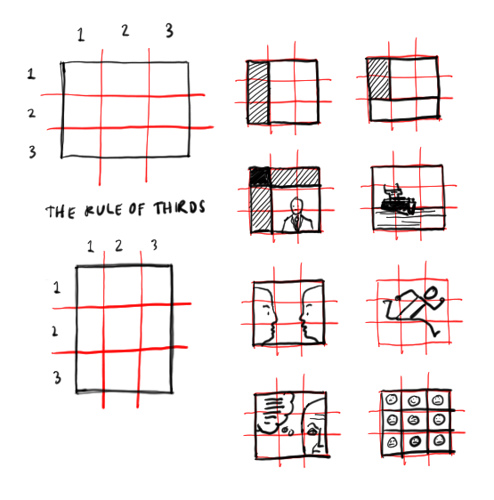 1 2 3
1
2
3
THE RULE OF THIRDS
1 2 3
1
2
3